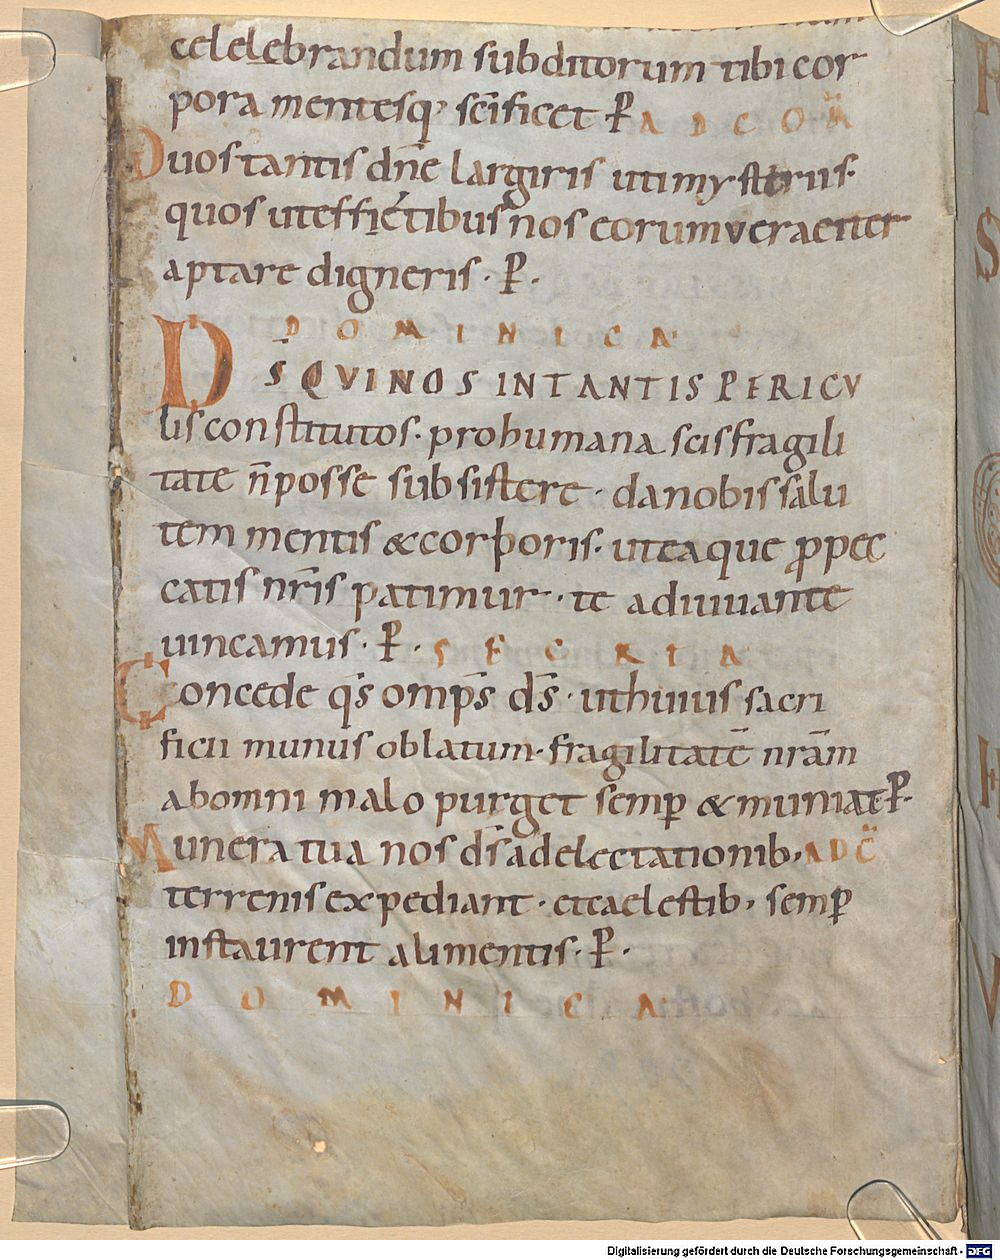 celelebrandum subditorum tibi cor
pora mentesq; scīficet P̄ AD COM̄
Quos tantis dn̄e largiris uti mysteriis·
quos ut effectibus nos eorum veraciter
aptare digneris · P̄ ·
DOMINICA
DS̄ QVI NOS IN TANTIS PERICV
lis constitutos· pro humana scis fragili
tate n̄ posse subsistere · da nobis salu
tem mentis & corporis· ut ea que ꝓ pec
catis nr̄is patimur · te adiuuante
uincamus · P̄ · SECRTA
Concede qs̄ omps̄ ds̄ · ut huius sacri
ficii munus oblatum· fragilitatē nrām
ab omni malo purget semꝑ & muniat P̄·
Munera tua nos ds̄ a delectationib; AD C̄
terrenis expediant · et caelestib; semꝑ
instaurent alimentis· P̄ ·
DOMINICA
Digitalisierung gefördert durch die Deutsche Forschungsgemeinschaft - DFG